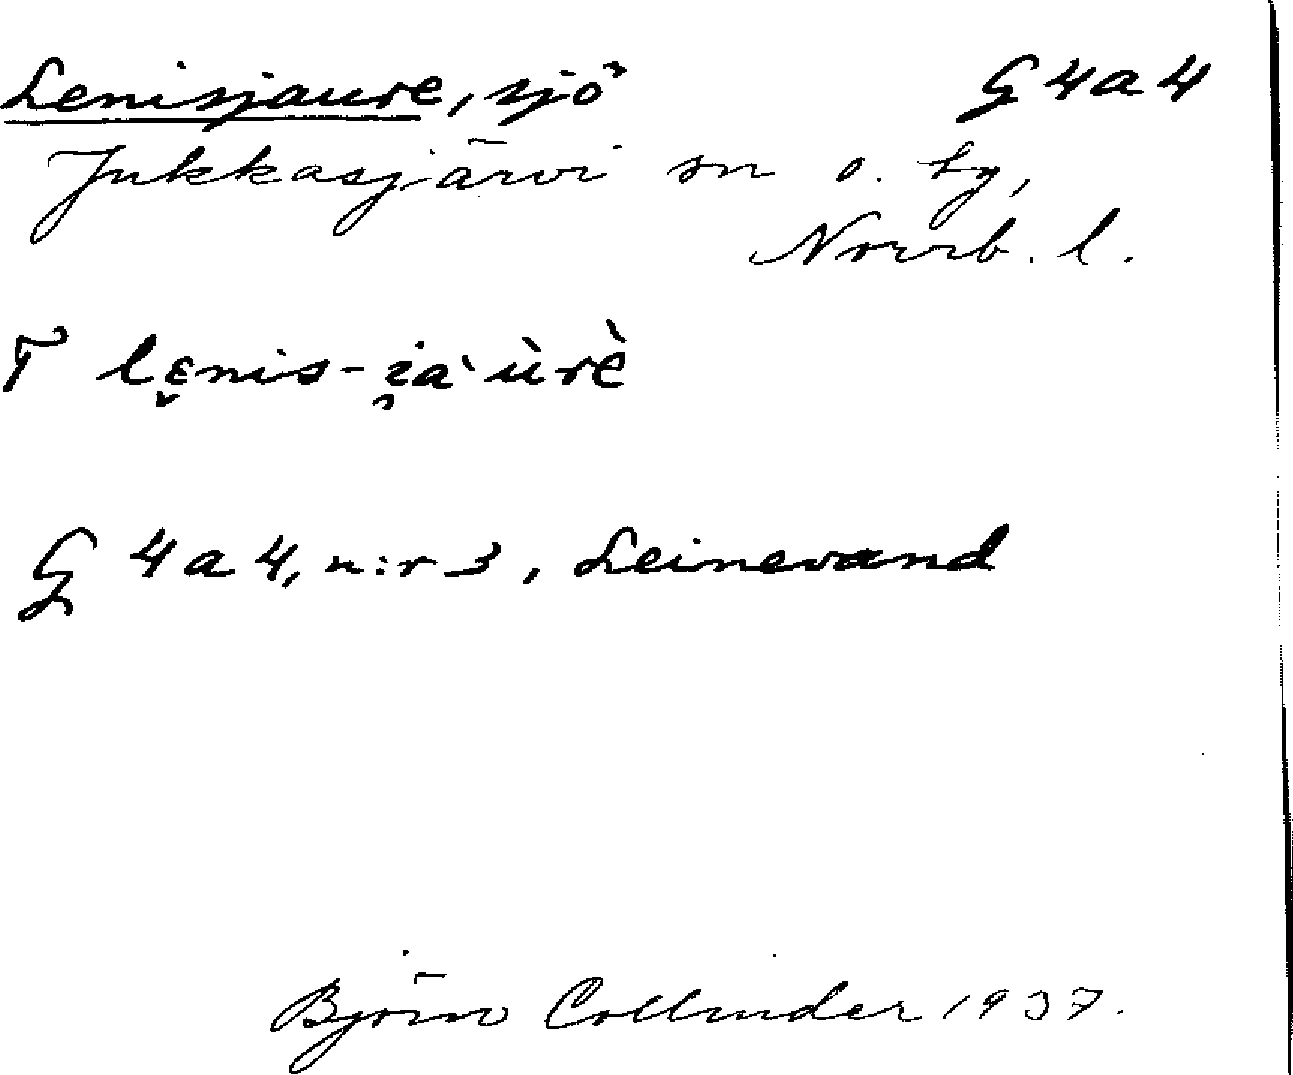 Lenisjaure, sjö G 4 a 4
Jukkasjärvi sn o. tg,
Norrb. l.
T lę̬nis-i̯a`ùrè
G 4 a 4, n:r 3, Leinevand
Björn Collinder 1937.